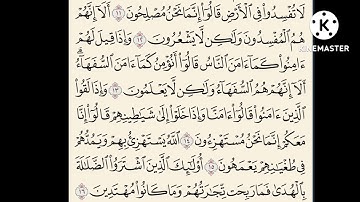 لَا تُفْسِدُوا۟ فِى ٱلْأَرْضِ قَالُوٓا۟ إِنَّمَا نَحْنُ مُصْلِحُونَ ١١ أَلَآ إِنَّهُمْ
هُمُ ٱلْمُفْسِدُونَ وَلَـٰكِن لَّا يَشْعُرُونَ ١٢ وَإِذَا قِيلَ لَهُمْ
ءَامِنُوا۟ كَمَآ ءَامَنَ ٱلنَّاسُ قَالُوٓا۟ أَنُؤْمِنُ كَمَآ ءَامَنَ ٱلسُّفَهَآءُ ۗ
أَلَآ إِنَّهُمْ هُمُ ٱلسُّفَهَآءُ وَلَـٰكِن لَّا يَعْلَمُونَ ١٣ وَإِذَا لَقُوا۟
ٱلَّذِينَ ءَامَنُوا۟ قَالُوٓا۟ ءَامَنَّا وَإِذَا خَلَوْا۟ إِلَىٰ شَيَـٰطِينِهِمْ قَالُوٓا۟ إِنَّا
مَعَكُمْ إِنَّمَا نَحْنُ مُسْتَهْزِءُونَ ١٤ ٱللَّهُ يَسْتَهْزِئُ بِهِمْ وَيَمُدُّهُمْ
فِى طُغْيَـٰنِهِمْ يَعْمَهُونَ ١٥ أُو۟لَـٰٓئِكَ ٱلَّذِينَ ٱشْتَرَوُا۟ ٱلضَّلَـٰلَةَ
بِٱلْهُدَىٰ فَمَا رَبِحَت تِّجَـٰرَتُهُمْ وَمَا كَانُوا۟ مُهْتَدِينَ ١٦
KINEMASTER